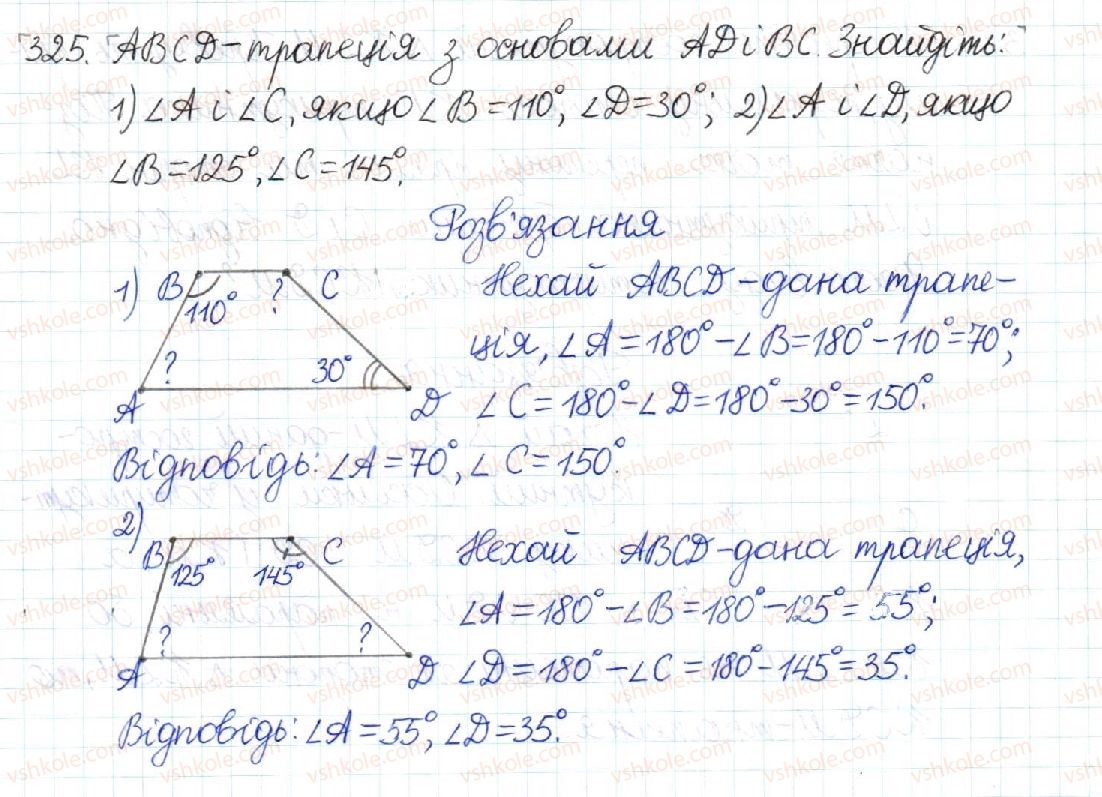 325. ABCD – трапеція з основами AD і BC. Знайдіть:
1) ∠A і ∠C, якщо ∠B = 110°, ∠D = 30°; 2) ∠A і ∠D, якщо
∠B = 125°, ∠C = 145°.
Розв'язання
1) B 110° ? C
? 30°
A D
Нехай ABCD – дана трапе-
ція, ∠A = 180° – ∠B = 180° – 110° = 70°;
∠C = 180° – ∠D = 180° – 30° = 150°.
Відповідь: ∠A = 70°, ∠C = 150°.
2) B 125° 145° C
? ?
A D
Нехай ABCD – дана трапеція,
∠A = 180° – ∠B = 180° – 125° = 55°;
∠D = 180° – ∠C = 180° – 145° = 35°.
Відповідь: ∠A = 55°, ∠D = 35°.
vshkole.com